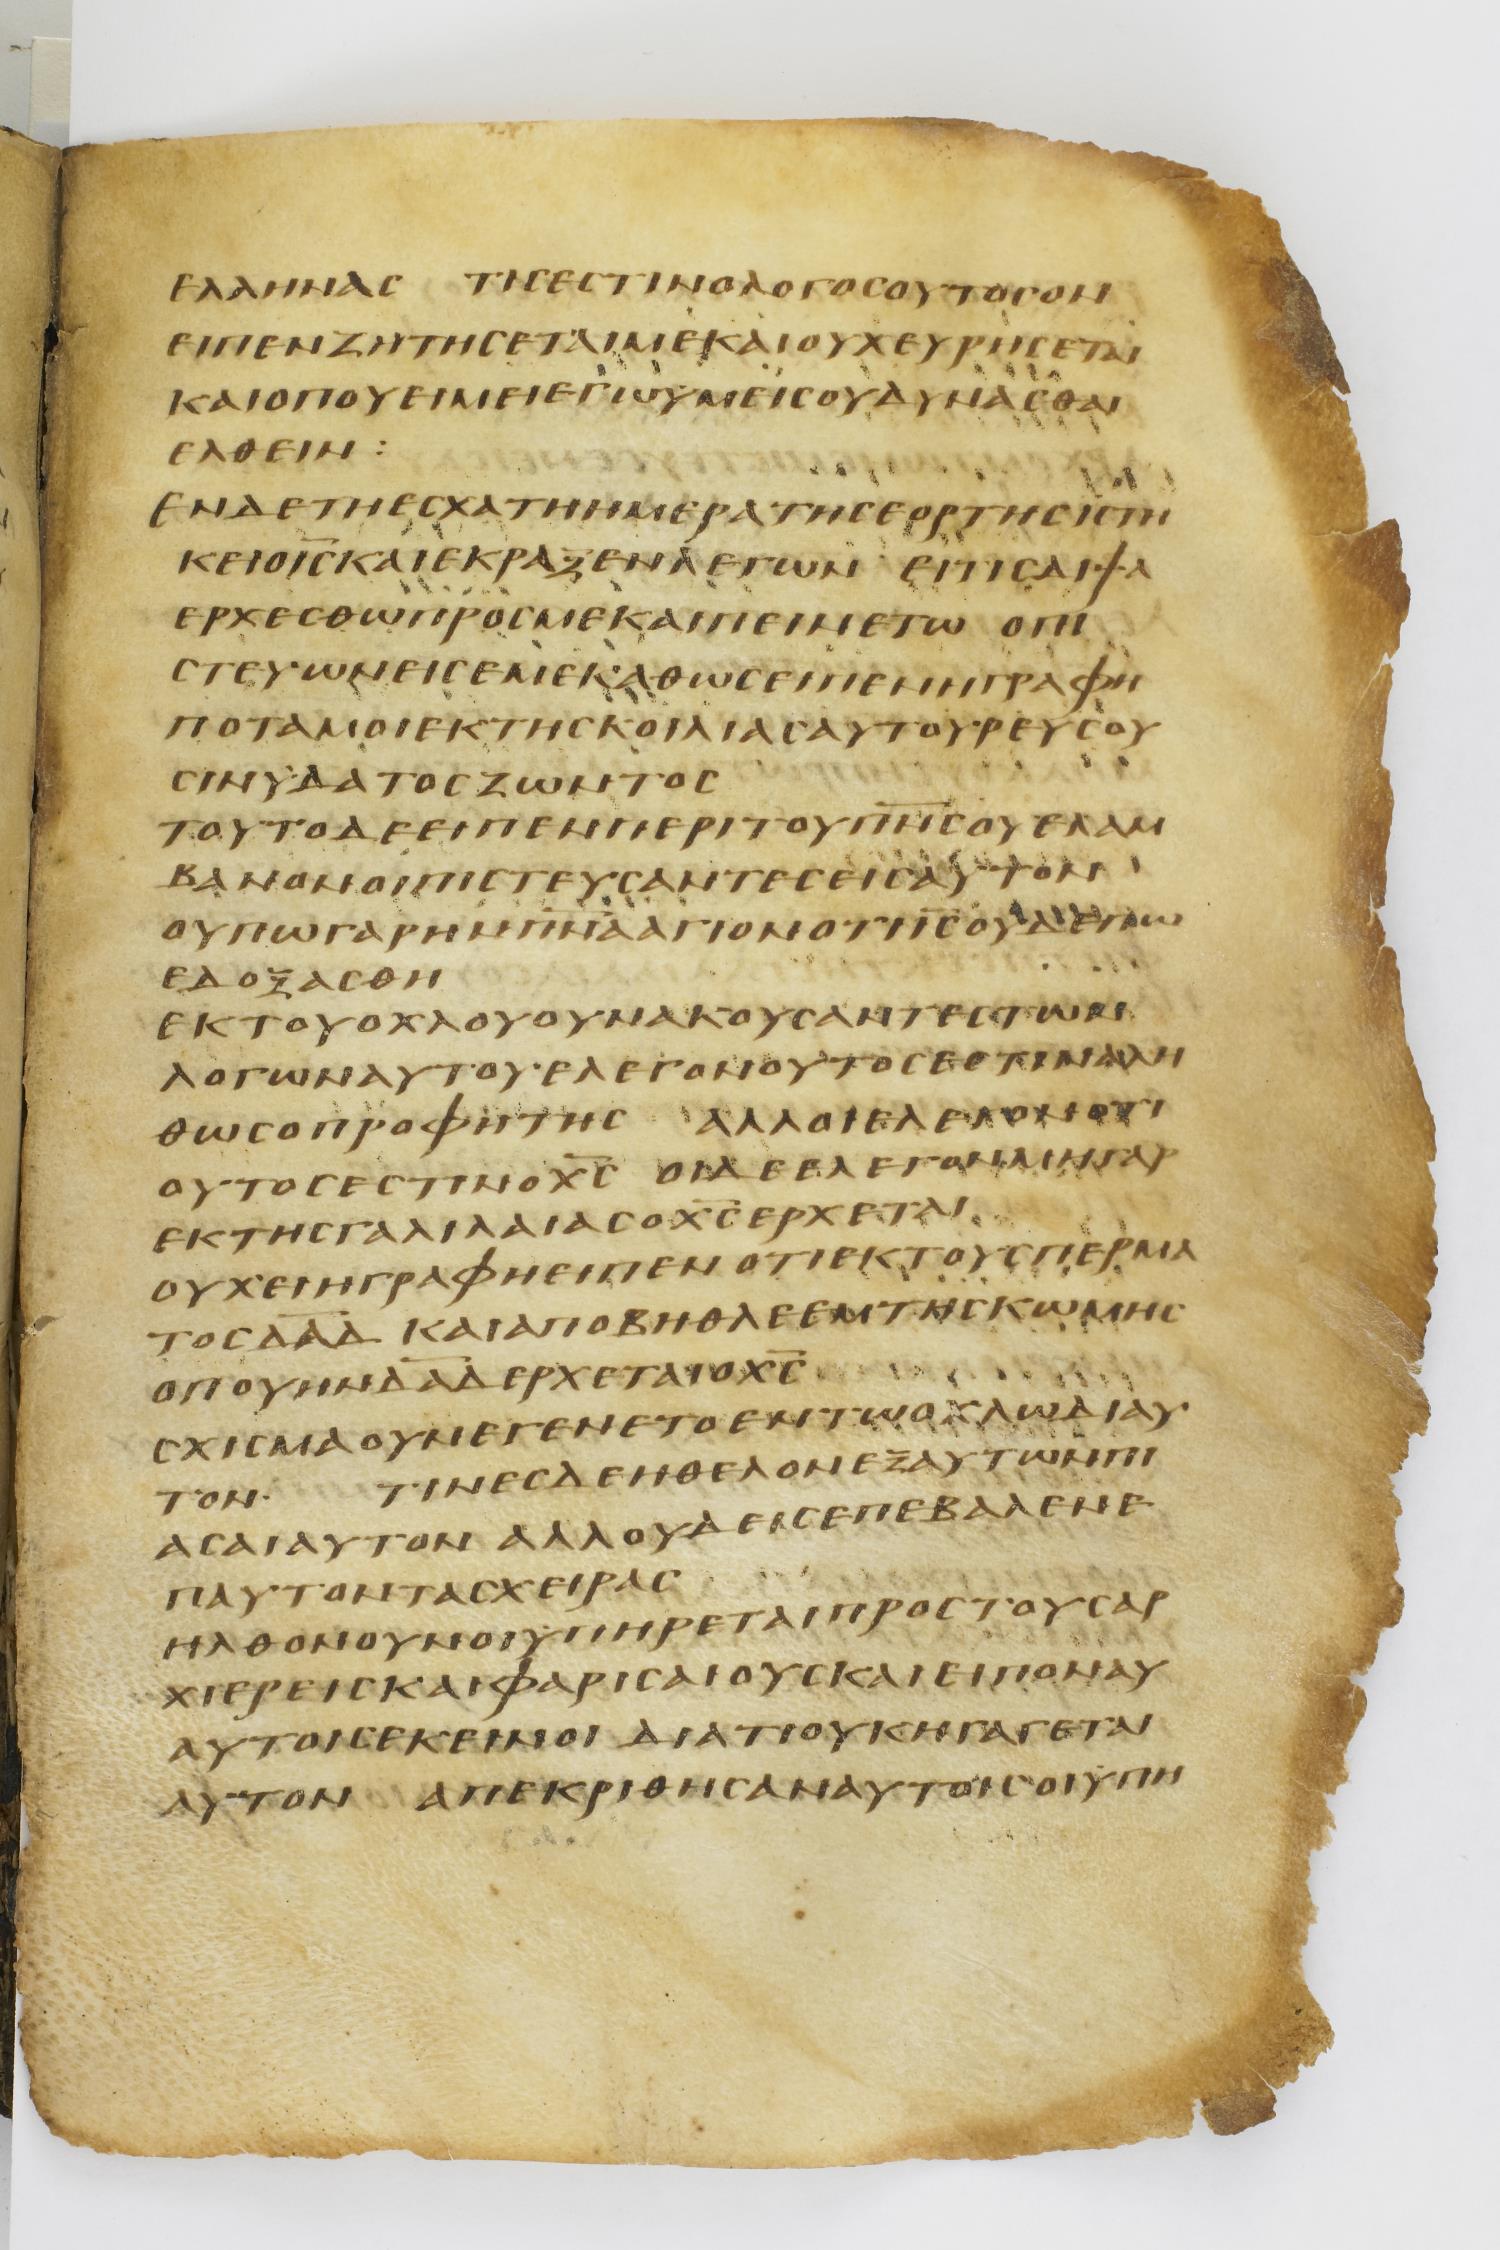 ΕΛΛΗΝΑC ΤΙCΕCΤΙΝΟΛΟΓΟCΟΥΤΟCΟΝ
ΕΙΠΕΝΖΗΤΗCΕΤΑΙΜΕΚΑΙΟΥΧΕΥΡΗCΕΤΑΙ
ΚΑΙΟΠΟΥΕΙΜΕΙΕΓΩΥΜΕΙCΟΥΔΥΝΑCΘΑΙ
ΕΛΘΕΙΝ :
ΕΝΔΕΤΗΕCΧΑΤΗΗΜΕΡΑΤΗCΕΟΡΤΗCΙCΤΗ
ΚΕΙΟΙ̅C̅ΚΑΙΕΚΡΑΞΕΝΛΕΓΩΝ ΕΙΤΙCΔΙΨΑ
ΕΡΧΕCΘΩΠΡΟCΜΕΚΑΙΠΕΙΝΕΤΩ ΟΠΙ
CΤΕΥΩΝΕΙCΕΜΕΚΑΘΩCΕΙΠΕΝΗΓΡΑΦΗ
ΠΟΤΑΜΟΙΕΚΤΗCΚΟΙΛΙΑCΑΥΤΟΥΡΕΥCΟΥ
CΙΝΥΔΑΤΟCΖΩΝΤΟC
ΤΟΥΤΟΔΕΕΙΠΕΝΠΕΡΙΤΟΥΠ̅Ν̅C̅ΟΥΕΛΑΜ
ΒΑΝΟΝΟΙΠΙCΤΕΥCΑΝΤΕCΕΙCΑΥΤΟΝ
ΟΥΠΩΓΑΡΗΝΠ̅Ν̅Α̅ΑΓΙΟΝΟΤΙΙ̅C̅ΟΥΔΕΠΩ
ΕΔΟΞΑCΘΗ
ΕΚΤΟΥΟΧΛΟΥΟΥΝΑΚΟΥCΑΝΤΕCΤΩΝ
ΛΟΓΩΝΑΥΤΟΥ·ΕΛΕΓΟΝΟΥΤΟCΕCΤΙΝΑΛΗ
ΘΩCΟΠΡΟΦΗΤΗC ΑΛΛΟΙΕΛΕΓΟΝΟΤΙ
ΟΥΤΟCΕCΤΙΝΟΧ̅C̅ ΟΙΔΕΕΛΕΓΟΝΜΗΓΑΡ
ΕΚΤΗCΓΑΛΙΛΑΙΑCΟΧ̅C̅ΕΡΧΕΤΑΙ
ΟΥΧΕΙΗΓΡΑΦΗΕΙΠΕΝΟΤΙΕΚΤΟΥCΠΕΡΜΑ
ΤΟCΔ̅Α̅Δ̅ ΚΑΙΑΠΟΒΗΘΛΕΕΜΤΗCΚΩΜΗC
ΟΠΟΥΗΝΔ̅Α̅Δ̅ΕΡΧΕΤΑΙΟΧ̅C̅
CΧΙCΜΑΟΥΝΕΓΕΝΕΤΟΕΝΤΩΟΧΛΩΔΙΑΥ
ΤΟΝ· ΤΙΝΕCΔΕΗΘΕΛΟΝΕΞΑΥΤΩΝΠΙ
ΑCΑΙΑΥΤΟΝ ΑΛΛΟΥΔΕΙCΕΠΕΒΑΛΕΝΕ
ΠΑΥΤΟΝΤΑCΧΕΙΡΑC
ΗΛΘΟΝΟΥΝΟΙΥΠΗΡΕΤΑΙΠΡΟCΤΟΥCΑΡ
ΧΙΕΡΕΙCΚΑΙΦΑΡΙCΑΙΟΥCΚΑΙΕΙΠΟΝΑΥ
ΑΥΤΟΙCΕΚΕΙΝΟΙ ΔΙΑΤΙΟΥΚΗΓΑΓΕΤΑΙ
ΑΥΤΟΝ ΑΠΕΚΡΙΘΗCΑΝΑΥΤΟΙCΟΙΥΠΗ